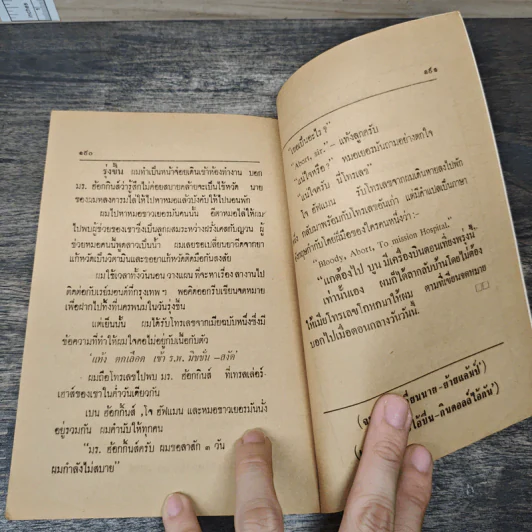 ๑๙๐
รุ่งขึ้น ผมทำเป็นหน้าจ๋อยเดินเข้าห้องทำงาน บอก
มร. ฮ้อกกินส์ว่ารู้สึกไม่ค่อยสบายคล้ายจะเป็นไข้หวัด นาย
ของผมหลงการมารยาไล่ให้ไปหาหมอแล้วบังคับให้ไปนอนพัก
ผมไปหาหมอชาวเยอรมันคนนั้น
ไปพบผู้ช่วยของเขาซึ่งเป็นลูกผสมระหว่างฝรั่งเศสกับญวน ผู้
ช่วยหมอคนนี้พูดลาวเป็นน้ำ ผมเลยขอเปลี่ยนยาฉีดจากยา
แก้หวัดเป็นวิตามินและขอยาแก้หวัดติดมือกันสงสัย
ผมใช้เวลาทั้งวันนอน วางแผน ที่จะหาเรื่อง ลางานไป
ติดต่อกับเรย์มอนด์ที่กรุงเทพ ฯ พอคิดออกรีบเขียนจดหมาย
เพื่อฝากไปทิ้งที่นครพนมในวันรุ่งขึ้น
แต่เย็นนั้น ผมได้รับโทรเลขจากเมียฉบับหนึ่งซึ่งมี
ข้อความที่ทำให้ผมใจคอไม่อยู่กับเนื้อกับตัว
"แท้ง ตกเลือด เข้า ร.พ. มิชชั่น -สงัด"
ผมถือโทรเลขไปพบ มร. ฮ้อกกินส์ ที่เทรลเล่อร์-
เฮาส์ของเขาในค่ำวันเดียวกัน
เบน ฮ้อกกินส์, โจ ฮัฟแมน และหมอชาวเยอรมันนั่ง
อยู่รวมกัน ผมคำนับให้ทุกคน
"มร. ฮ้อกกินส์ครับ ผมขอลาสัก ๓ วัน
ผมกำลังไม่สบาย"
๑๙๑
"เธอเป็นอะไร ?"
"Abort, sir." — แท้งลูกครับ
"แน่ใจหรือ?" หมอเยอรมันถามอย่างตกใจ
"แน่ใจครับ นี่โทรเลข"
โจ ฮัฟแมน รับโทรเลขจากผมเดินหายลงไปพัก
หนึ่ง กลับมาพร้อมกับโทรเลขอันเก่า แต่มีคำแปลเป็นภาษา
อังกฤษกำกับโดยฝีมือของใครคนหนึ่งว่า:-
"Bloody, Abort, To mission Hospital."
"แกต้องไป บุน มีเครื่องบินตอนเที่ยงพรุ่งนี้"
เท่านั้นเอง ผมก็ได้ลากลับบ้านโดยไม่ต้อง
ให้เมียโทรเลขโกหกมาให้ผม ตามที่เขียนจดหมาย
บอกไปเมื่อตอนกลางวันวันนี้.